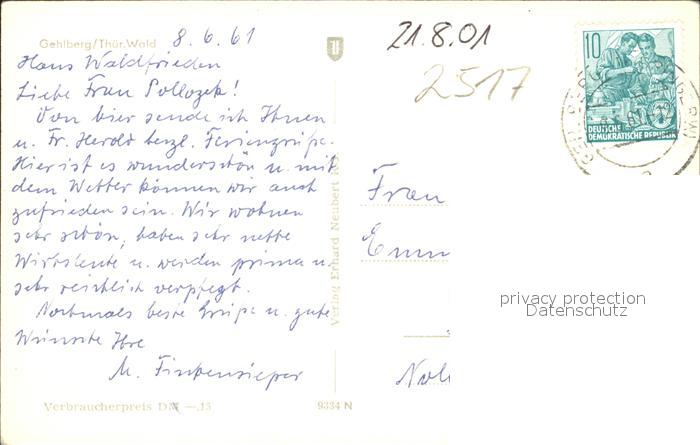 Gehlberg/Thür. Wald 8.6.61
Haus Waldfrieden
Liebe Frau Pollozek!
Von hier sende ich Ihnen
u. Fr. Herold herzl. Feriengrüße.
Hier ist es wunderschön u. mit
dem Wetter können wir auch
zufrieden sein. Wir wohnen
sehr schön, haben sehr nette
Wirtsleute u. werden prima u.
sehr reichlich verpflegt.
Nochmals beste Grüße u. gute
Wünsche Ihre
M. Finkensieper
Verbraucherpreis DM —.15
9334 N
Verlag Erhard Neubert
21.8.01
2517
10
DEUTSCHE
DEMOKRATISCHE REPUBLIK
Frau
privacy protection
Datenschutz